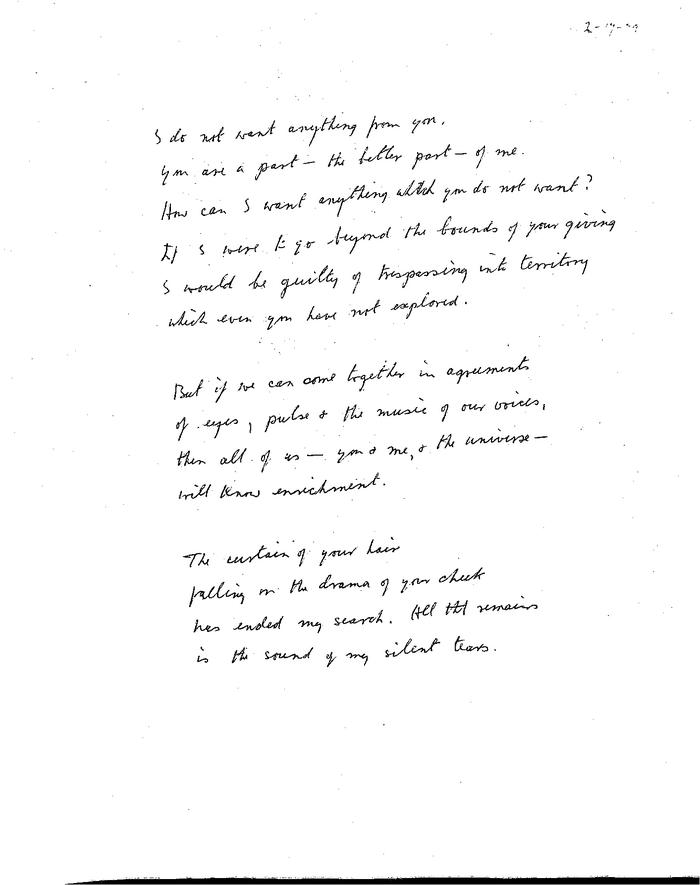 I do not want anything from you.
You are a part — the better part — of me.
How can I want anything which you do not want?
If I were to go beyond the bounds of your giving
I would be guilty of trespassing into territory
which even you have not explored.
But if we can come together in agreements
of eyes, pulse & the music of our voices,
then all of us — you & me, & the universe —
will know enrichment.
The curtain of your hair
falling on the drama of your cheek
has ended my search. All tht remains
is the sound of my silent tears.